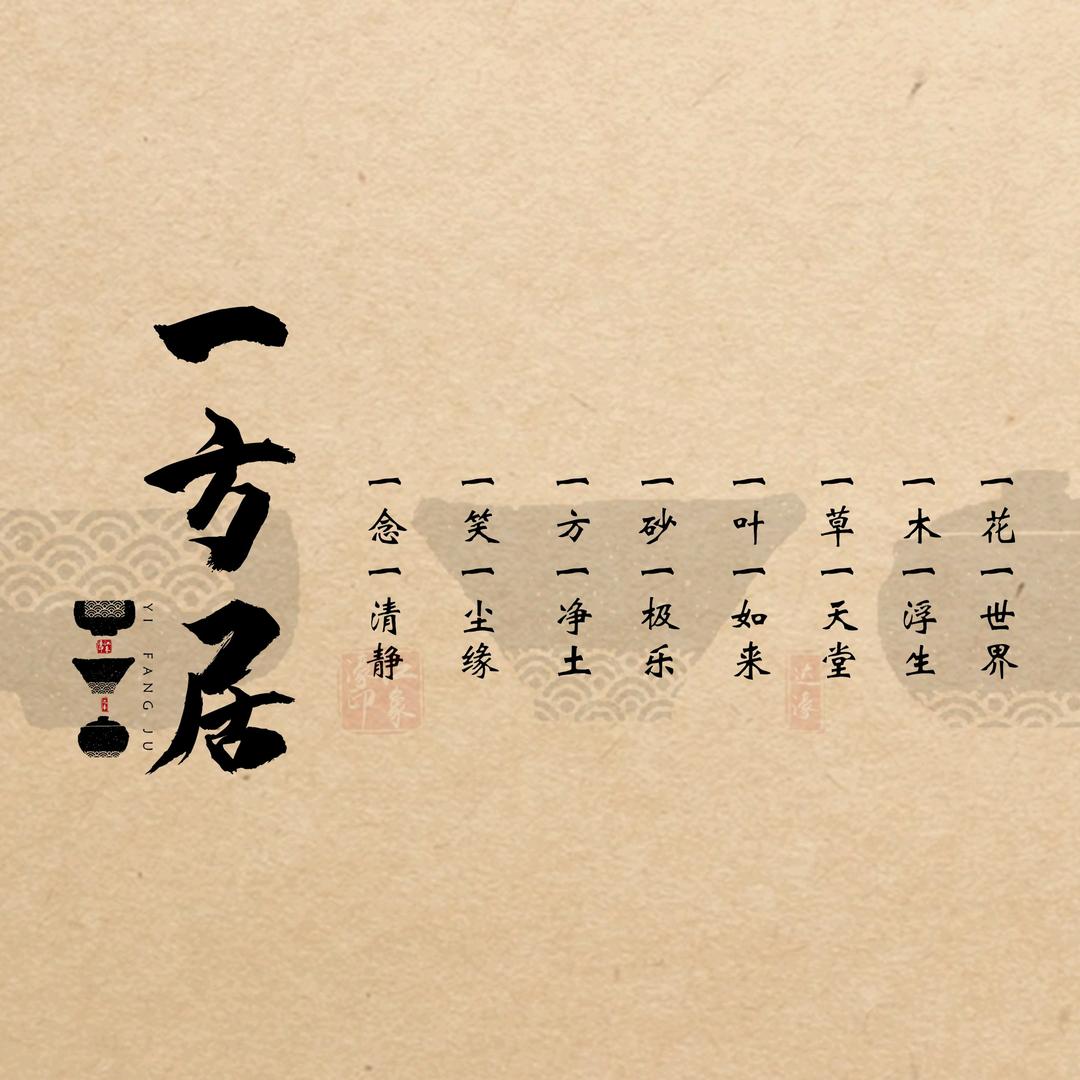 一花一世界
一木一浮生
一草一天堂
一叶一如来
一砂一极乐
一方一净土
一笑一尘缘
一念一清静
一方居
YI FANG JU